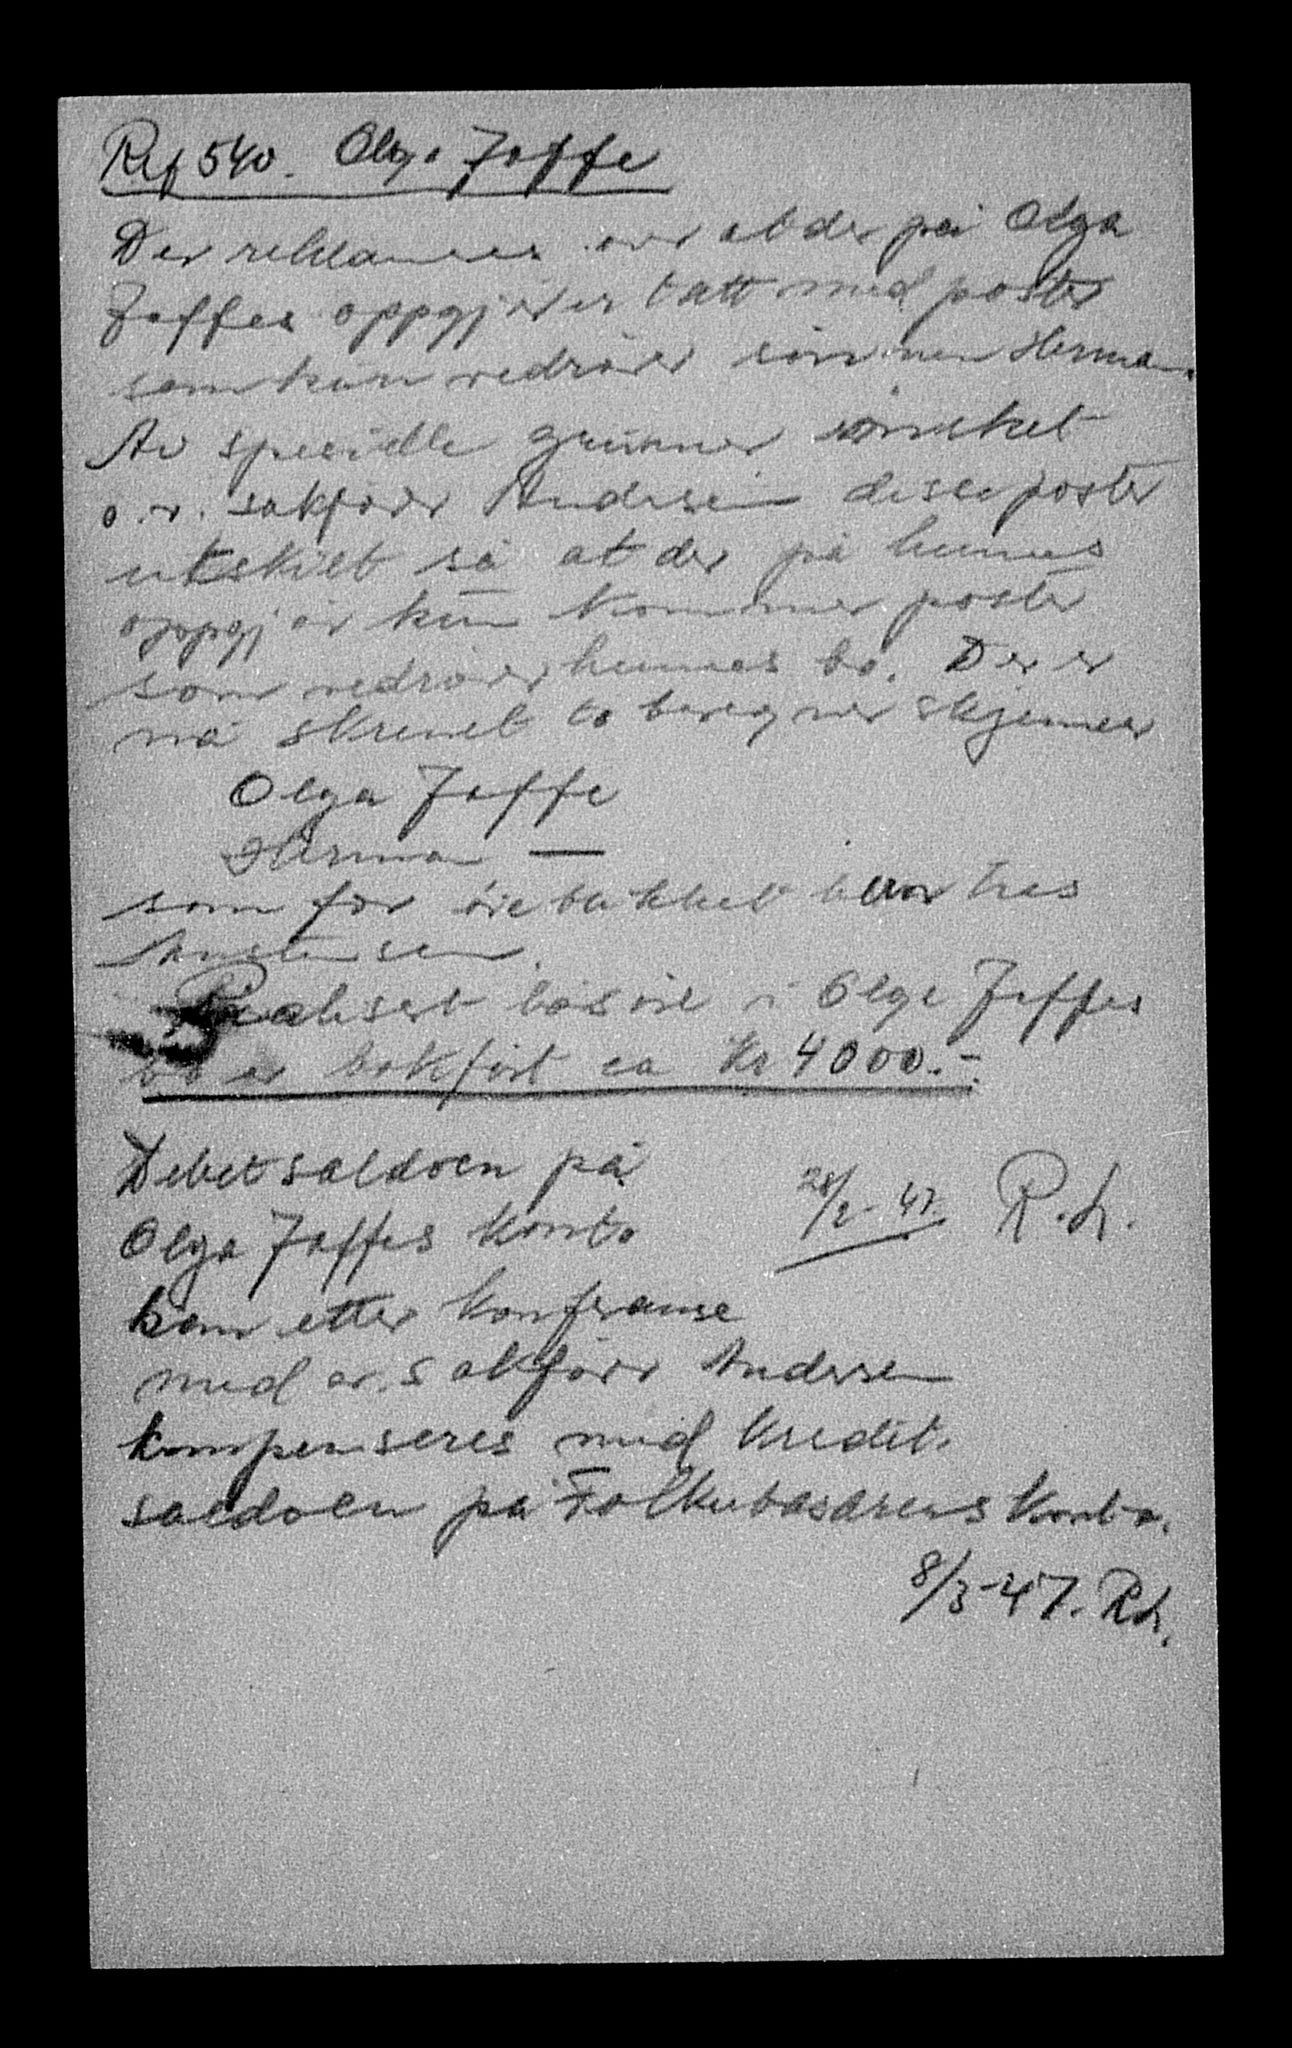 Ref 540. Olga Jaffe
Der reklameres over at der på Olga
Jaffes oppgjör er tatt med poster
som kun vedrörer sönnen Herman.
Av spesielle grunner önsket
o.r. sakförer Andersen disse poster
utskilt så at der på hennes
oppgjör kun kommer poster
som vedrörer hennes bo. Der er
nå skrevet to skjemaer
Olga Jaffe
Herman —
som for öieblikket hos
Realisert lösöre i Olga Jaffes
bo er bokfört ca Kr 4000.-
Debetsaldoen på
28/2-47. R.L.
Olga Jaffes konto
kan etter konferanse
med or. sakförer Andersen
kompenseres med kredit-
saldoen på Folkebasarens konto.
8/3-47. RL.